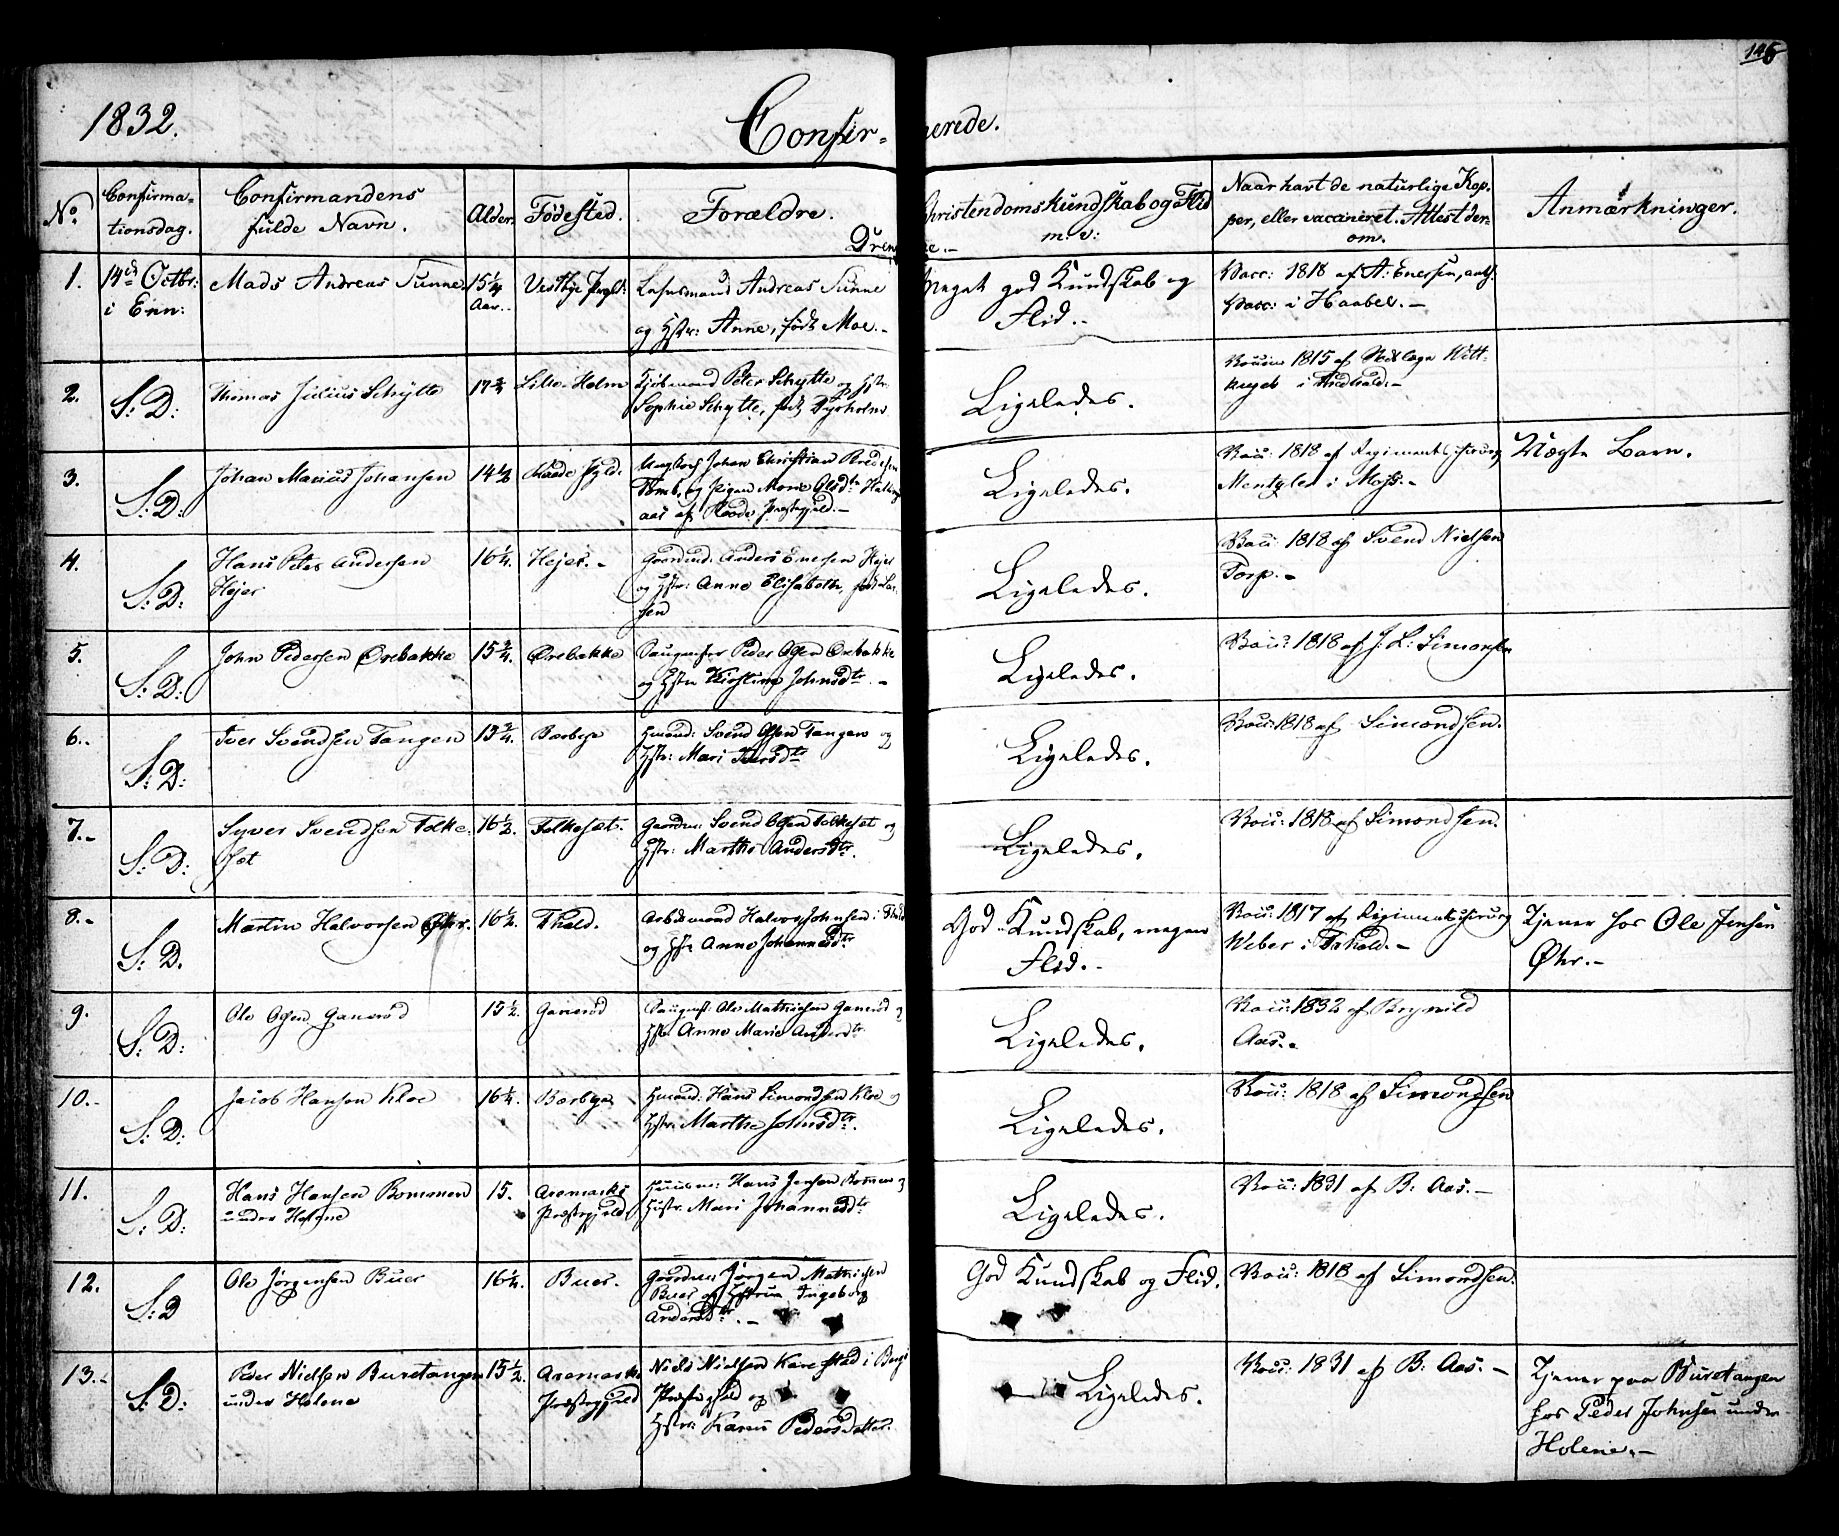 146
1832.
Confir-
merede.
No.
Confirma-
tionsdag.
Confirmandens
fulde Navn.
Alder.
Fødested.
Forældre.
Christendomskundskab og Flid
m: v:
Naar havt de naturlige Kop-
per, eller vaccineret. Attest der-
om.
Anmærkninger.
Drenge.-
1.
14de Octbr:
i Enn:
Mads Andreas Sunne
15 1/4
Aar.
Vestbye Prgl:
Lehnsmand Andreas Sunne
og Hstr: Anne, født Moe.-
Meget god Kundskab og
Flid.-
Vacc: 1818 af A: Enersen, auth.
Vacc: i Haabel.-
2.
S: D:
Thomas Julius Schytte
17 3/4
Lille-Holm
Kjøbmand Peter Schytte og Hstr:
Sophie Schytte, født Dyrholm
Ligeledes.
1815 af
i Fredhald.-
3.
S: D:
Johan Marius Johansen
14 1/2
Raade Pgld.
Ungkarl Johan Christian
og Pigen Marie Olsdtr
aas af Raade Prestegjeld.-
Ligeledes.
Vacc: 1818 af Regimentschirurg
Mentzler i Moss.-
Uægte Barn.
4.
S: D:
Hans Peter Andersen
Højer
16 1/4.
Højer.-
Gaardmd: Anders Enersen Højer
og Hstr: Anne Elisabeth, født Lar-
sen
Ligeledes.
Vacc: 1818 af Svend Nielsen
Torp.-
5.
S: D:
John Pedersen Ørebakke
15 3/4.
Ørebakke
Peder Olsen Ørebakke
og Hstr Kirstine Johnsdtr.-
Ligeledes.
Vacc: 1818 af J. L: Simonsen
6.-
S: D:
Iver Svendsen Tangen
15 3/4.
Barbye
Hmand: Svend Olsen Tangen og
Hstr: Mari Iversdtr
Ligeledes.
Vacc: 1818 af Simondsen.
7.-
S: D:
Syver Svendsen Folke-
sæt
16 1/2.
Folkesæt.
Gaardm: Svend Olsen Folkesæt og
Hstr: Marthe Andersdtr.
Ligeledes.
Vacc: 1818 af Simondsen.
8.-
S: D.
Martin Halvorsen Øhr.
16 1/2.
Fhald.
Arbeidsmand Halvor Johnsen i Fhald
og Hstr Anne Johannesdtr
God Kundskab, megen
Flid.-
Vacc: 1817 af Regimentschirurg
Weber i Frhald.-
Tjener hos Ole Jensen
Øhr.-
9.
S: D:
Ole Olsen Ganerød
15 1/2.
Ganerød
Ole Mathisen Ganerød og
Hstr Anne Marie Andersdtr
Ligeledes.
Vacc: 1832 af Brynild
Aas.-
10.-
S: D:
Jacob Hansen Kloe
16 1/4.
Barbye
Hmand: Hans Simondsen Kloe og
Hstr: Marthe Johnsdtr.
Ligeledes.
Vacc: 1818 af Simondsen
11.
S: D:
Hans Hansen Bommen
under Holene
15.
Aremarks
Præstegjeld
Huusm: Hans Jensen Bommen og
Hustr. Mari Johannesdtr
Ligeledes.
Vacc: 1831 af B: Aas.-
12.
S: D
Ole Jørgensen Buer
16 1/4.
Buer.
Gaardm: Jørgen Mathisen
Buer og Hstrue Ingeborg
Andersdtr.-
God Kundskab og Flid.
Vacc: 1818 af Simondsen.
13.-
S: D:
Peder Nielsen Buretangen
under Holene
15 1/2.
Aremarks
Præstegjeld
Niels Nielsen Karestad i Bergs
Præstegjeld og
Hstr: Karen Pedersdatter.
Ligeledes.
Vacc: 1831 af B: Aas.-
Tjener paa Buretangen
hos Peder Johnsen under
Holene.-